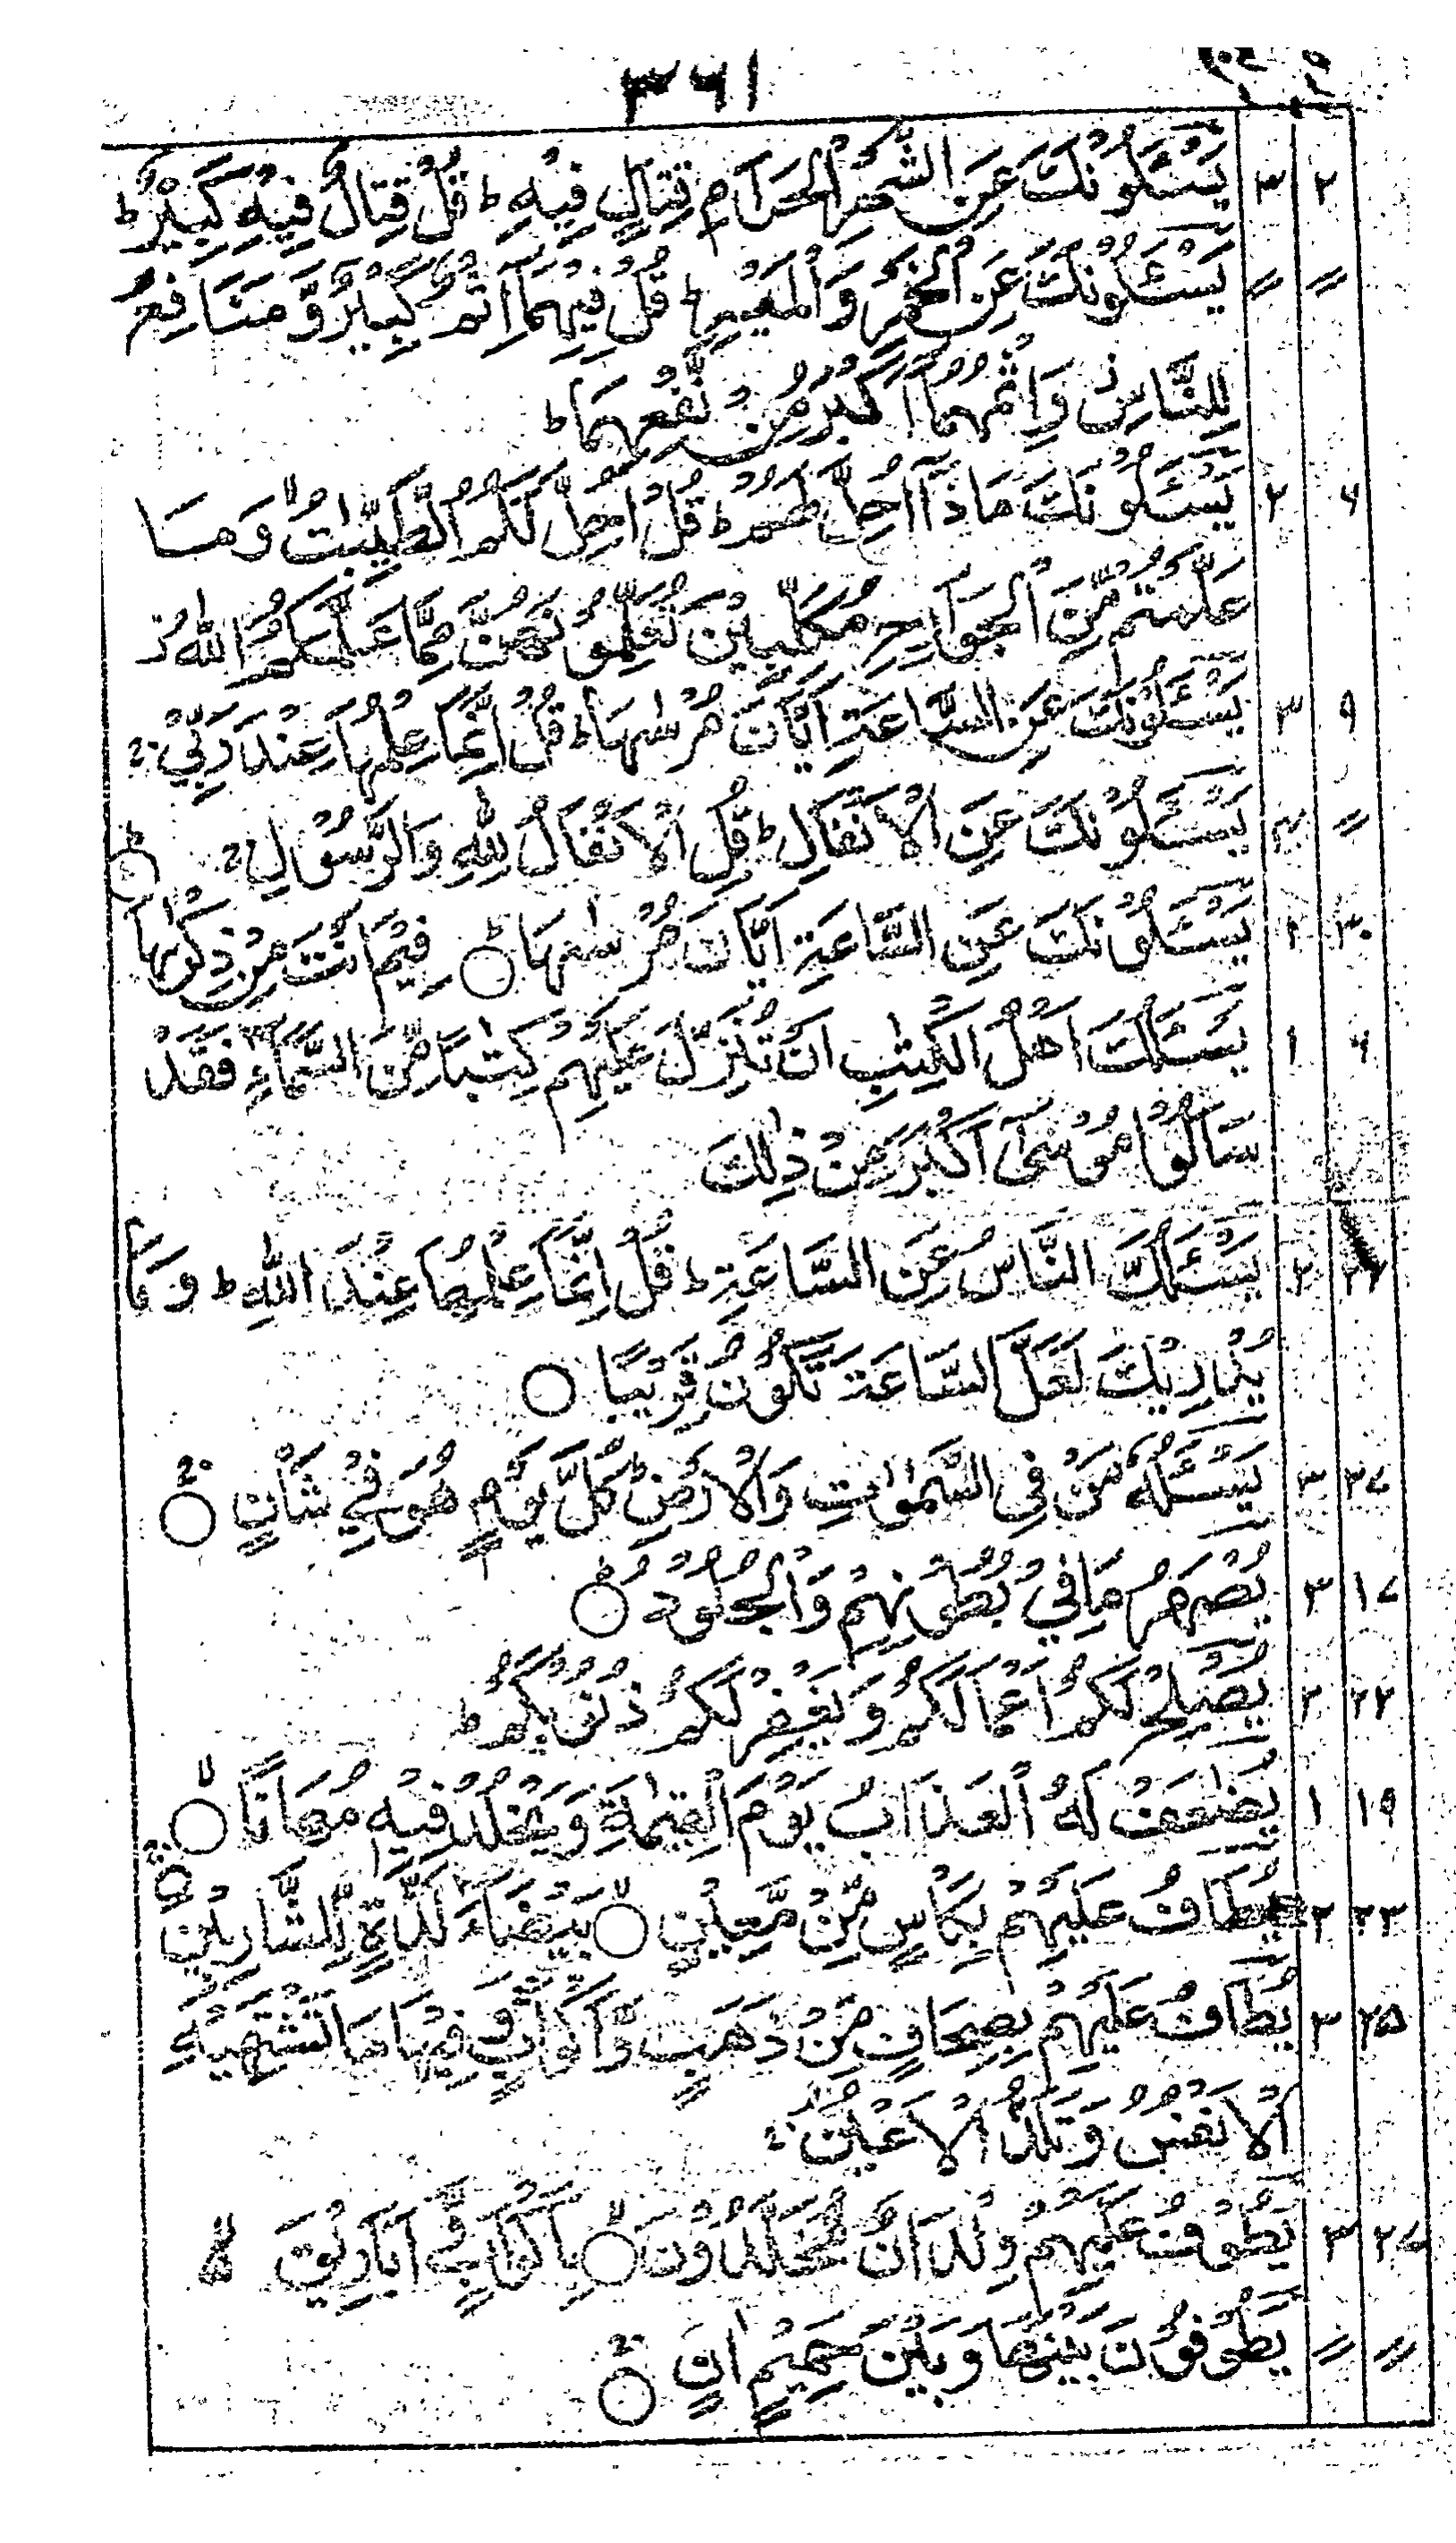 ٣٦١
٢ ٣ يَسْـَٔلُوْنَكَ عَنِ الشَّهْرِ الْحَرَامِ قِتَالٍ فِيْهِ ؕ قُلْ قِتَالٌ فِيْهِ كَبِيْرٌ ؕ
〃 〃 يَسْـَٔلُوْنَكَ عَنِ الْخَمْرِ وَالْمَيْسِرِ ؕ قُلْ فِيْهِمَاۤ اِثْمٌ كَبِيْرٌ وَّمَنَافِعُ
لِلنَّاسِ ز وَاِثْمُهُمَاۤ اَكْبَرُ مِنْ نَّفْعِهِمَا ؕ
٦ ٢ يَسْـَٔلُوْنَكَ مَاذَاۤ اُحِلَّ لَهُمْ ؕ قُلْ اُحِلَّ لَكُمُ الطَّيِّبٰتُ ۙ وَمَا
عَلَّمْتُمْ مِّنَ الْجَوَارِحِ مُكَلِّبِيْنَ تُعَلِّمُوْنَهُنَّ مِمَّا عَلَّمَكُمُ اللّٰهُ ز
٩ ٣ يَسْـَٔلُوْنَكَ عَنِ السَّاعَةِ اَيَّانَ مُرْسٰىهَا ؕ قُلْ اِنَّمَا عِلْمُهَا عِنْدَ رَبِّيْ ۚ
〃 يَسْـَٔلُوْنَكَ عَنِ الْاَنْفَالِ ؕ قُلِ الْاَنْفَالُ لِلّٰهِ وَالرَّسُوْلِ ۚ
٣٠ يَسْـَٔلُوْنَكَ عَنِ السَّاعَةِ اَيَّانَ مُرْسٰىهَا ○ؕ فِيْمَ اَنْتَ مِنْ ذِكْرٰىهَا ○ؕ
٦ ١ يَسْـَٔلُكَ اَهْلُ الْكِتٰبِ اَنْ تُنَزِّلَ عَلَيْهِمْ كِتٰبًا مِّنَ السَّمَآءِ فَقَدْ
سَاَلُوْا مُوْسٰۤى اَكْبَرَ مِنْ ذٰلِكَ
يَسْـَٔلُكَ النَّاسُ عَنِ السَّاعَةِ ؕ قُلْ اِنَّمَا عِلْمُهَا عِنْدَ اللّٰهِ ؕ وَمَا
يُدْرِيْكَ لَعَلَّ السَّاعَةَ تَكُوْنُ قَرِيْبًا ○
٢٧ ٣ يَسْـَٔلُهٗ مَنْ فِى السَّمٰوٰتِ وَالْاَرْضِ ؕ كُلَّ يَوْمٍ هُوَ فِيْ شَاْنٍ ○ۚ
١٧ ٣ يُصْهَرُ مَا فِيْ بُطُوْنِهِمْ وَالْجُلُوْدُ ○ؕ
٢٢ يُصْلِحْ لَكُمْ اَعْمَالَكُمْ وَيَغْفِرْ لَكُمْ ذُنُوْبَكُمْ ؕ
١٩ ١ يُضٰعَفْ لَهُ الْعَذَابُ يَوْمَ الْقِيٰمَةِ وَيَخْلُدْ فِيْهٖ مُهَانًا ○ۙ
٢٣ ٢ يُطَافُ عَلَيْهِمْ بِكَاْسٍ مِّنْ مَّعِيْنٍ ○ۙ بَيْضَآءَ لَذَّةٍ لِّلشّٰرِبِيْنَ ○ۚ
٢٥ ٣ يُطَافُ عَلَيْهِمْ بِصِحَافٍ مِّنْ ذَهَبٍ وَّاَكْوَابٍ ۚ وَفِيْهَا مَا تَشْتَهِيْهِ
الْاَنْفُسُ وَتَلَذُّ الْاَعْيُنُ ۚ
٢٧ ٣ يَطُوْفُ عَلَيْهِمْ وِلْدَانٌ مُّخَلَّدُوْنَ ○ۙ بِاَكْوَابٍ وَّاَبَارِيْقَ
〃 〃 يَطُوْفُوْنَ بَيْنَهَا وَبَيْنَ حَمِيْمٍ اٰنٍ ○ۚ